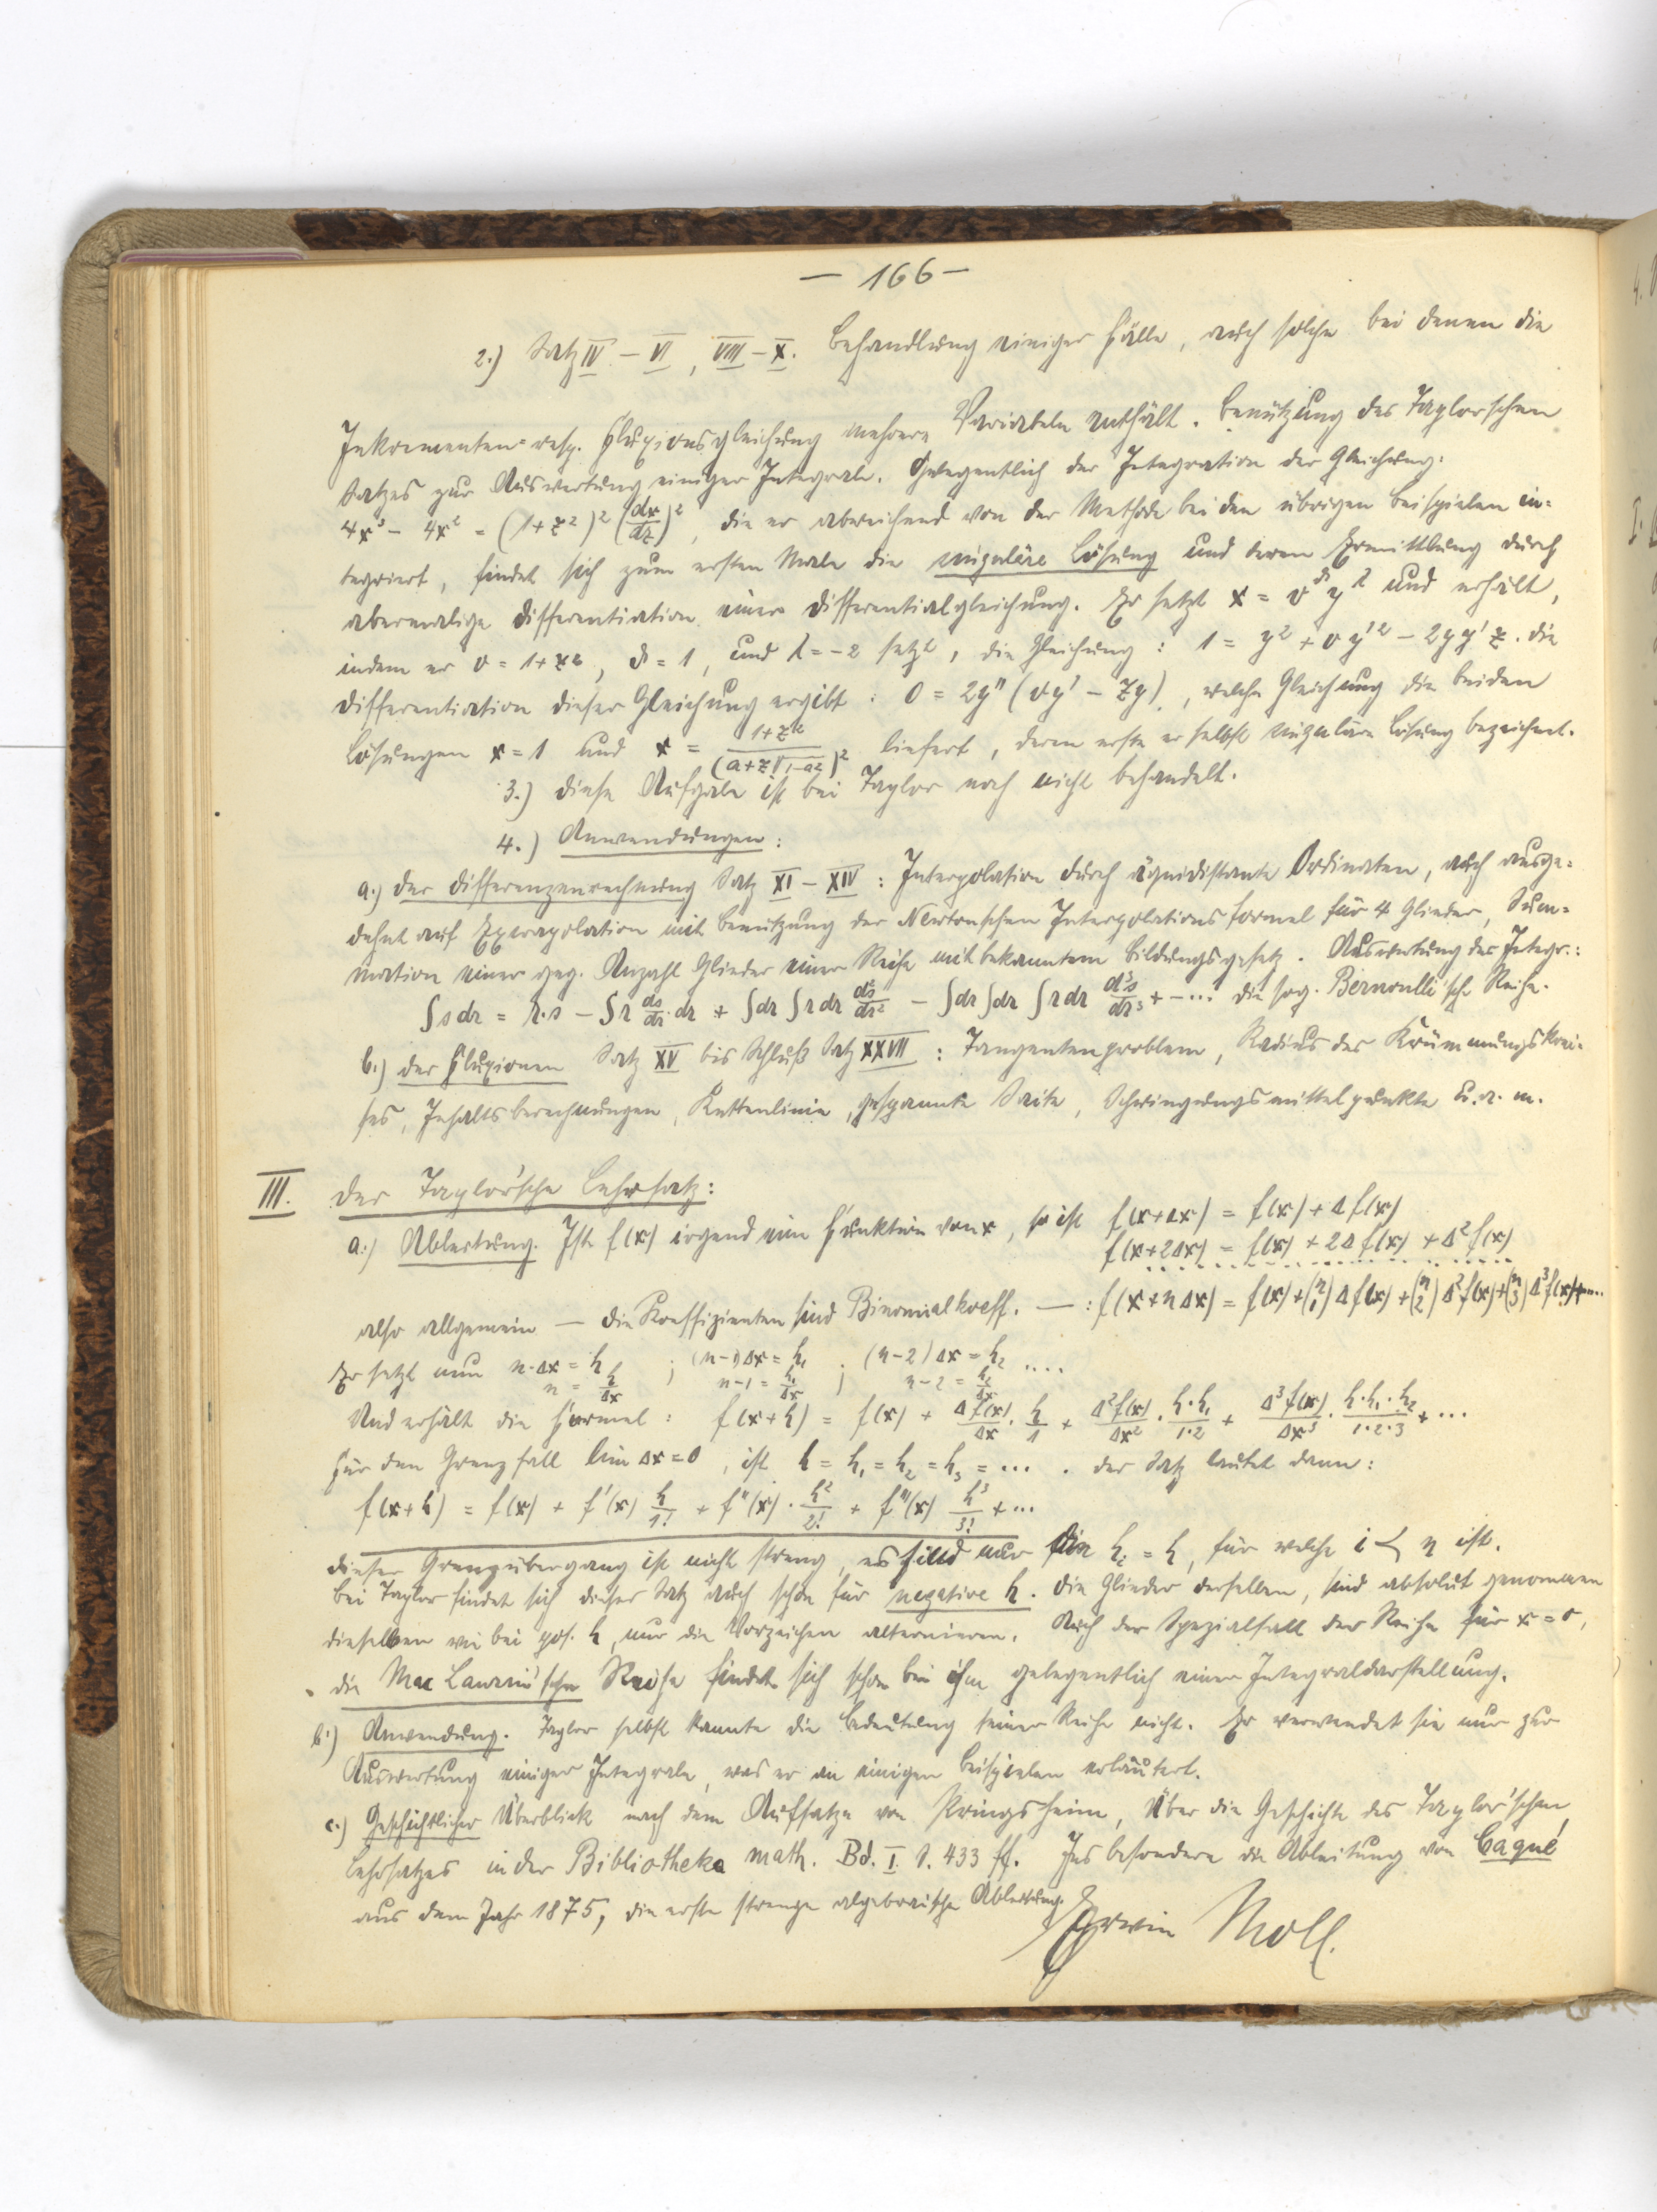 — 166 —
2.) Satz IV – VI, VIII – X. Behandlung einiger Fälle, auch solche bei denen die
Inkrementen- resp. Fluxionsgleichung mehrere Variabeln enthält. Benützung des Taylorschen
Satzes zur Auswertung einiger Integrale. Gelegentlich der Integration der Gleichung:
4x³ – 4x² = (1+z²)² (dx/dz)², die er abweichend von der Methode bei den übrigen Beispielen in-
tegriert, findet sich zum ersten Male die singuläre Lösung und deren Ermittlung durch
abermalige Differentiation einer Differentialgleichung. Er setzt x = v^ϑ y^λ und erhält,
indem er v = 1+z², ϑ = 1, und λ = –2 setzt, die Gleichung: 1 = y² + v y'² – 2yy'z. Die
Differentiation dieser Gleichung ergibt: 0 = 2y'' (vy' – zy), welche Gleichung die beiden
Lösungen x = 1 und x = (1+z²)/(a+z√(1–a²))² liefert, deren erste er selbst singuläre Lösung bezeichnet.
3.) Diese Aufgabe ist bei Taylor noch nicht behandelt.
4.) Anwendungen:
a.) Der Differenzenrechnung Satz XI – XIV: Interpolation durch äquidistante Ordinaten, auch ausge-
dehnt auf Extrapolation mit Benützung der Newtonschen Interpolationsformel für 4 Glieder, Sum-
mation einer geg. Anzahl Glieder einer Reihe mit bekanntem Bildungsgesetz. Auswertung des Integr.:
∫s dr = r·s – ∫r ds/dr dr + ∫dr ∫r dr d²s/dr² – ∫dr ∫dr ∫r dr d³s/dr³ + – ... die sog. Bernoulli'sche Reihe.
b.) Der Fluxionen Satz XV bis Schluß Satz XXVII: Tangentenproblem, Radius des Krümmungskrei-
ses, Inhaltsberechnungen, Kettenlinie, gespannte Saite, Schwingungsmittelpunkte u. a. m.
III. Der Taylor'sche Lehrsatz:
a.) Ableitung. Ist f(x) irgend eine Funktion von x, so ist f(x+Δx) = f(x) + Δf(x)
f(x+2Δx) = f(x) + 2Δf(x) + Δ²f(x)
also allgemein — die Koeffizienten sind Binomialkoeff. — : f(x+nΔx) = f(x) + (n 1) Δf(x) + (n 2) Δ²f(x) + (n 3) Δ³f(x) + ....
Er setzt nun n·Δx = h ; (n–1)Δx = h₁ ; (n–2)Δx = h₂ ....
n = h/Δx n–1 = h₁/Δx n–2 = h₂/Δx
Und erhält die Formel: f(x+h) = f(x) + Δf(x)/Δx · h/1 + Δ²f(x)/Δx² · h·h₁/1·2 + Δ³f(x)/Δx³ · h·h₁·h₂/1·2·3 + ...
Für den Grenzfall lim Δx = 0, ist h = h₁ = h₂ = h₃ = .... Der Satz lautet dann:
f(x+h) = f(x) + f'(x) h/1! + f''(x) · h²/2! + f'''(x) h³/3! + ...
Dieser Grenzübergang ist nicht streng, es sind nur die hᵢ = h, für welche i < n ist.
Bei Taylor findet sich dieser Satz auch schon für negative h. Die Glieder derselben, sind absolut genommen
dieselben wie bei pos. h, nur die Vorzeichen alternieren. Auch der Spezialfall der Reihe für x = 0,
die Mac Laurin'sche Reihe findet sich schon bei ihm gelegentlich einer Integraldarstellung.
b.) Anwendung. Taylor selbst kannte die Bedeutung seiner Reihe nicht. Er verwendet sie nur zur
Auswertung einiger Integrale, was er an einigen Beispielen erläutert.
c.) Geschichtlicher Überblick nach dem Aufsatze von Pringsheim, Über die Geschichte des Taylor'schen
Lehrsatzes in der Bibliotheka math. Bd. I. S. 433 ff. Insbesondere die Ableitung von Caqué
aus dem Jahr 1875, die erste strenge algebraische Ableitung.
Erwin Moll.